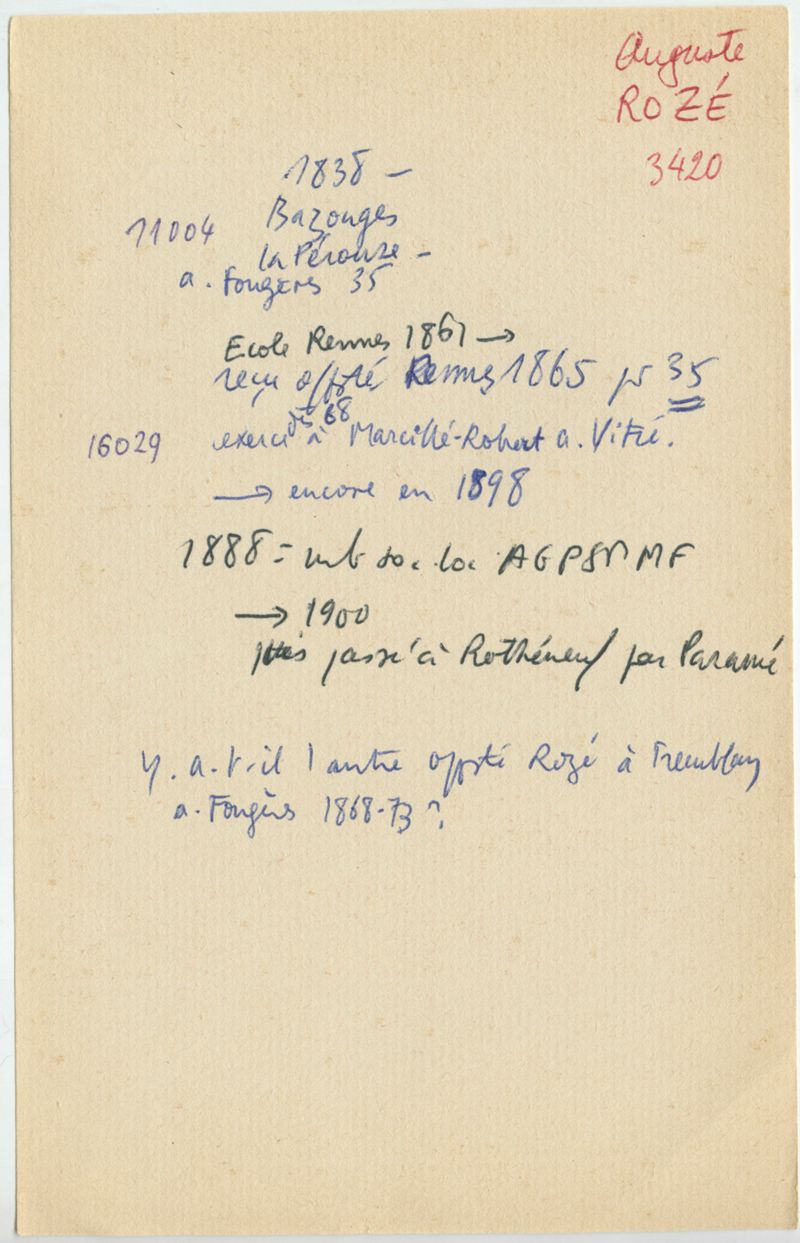 Auguste
ROZÉ
3420
1838 –
11004 Bazouges
la Pérouze –
a. Fougères 35
Ecole Rennes 1861 →
reçu offsté Rennes 1865 pr 35
dès 68
16029 exerce à Marcillé-Robert a. Vitré.
→ encore en 1898
1888 = mb soc. loc. AGPSMMF
→ 1900
puis passé à Rothéneuf par Paramé
Y. a-t-il 1 autre offsté Rozé à Tremblay
a. Fougères 1868-73 ?